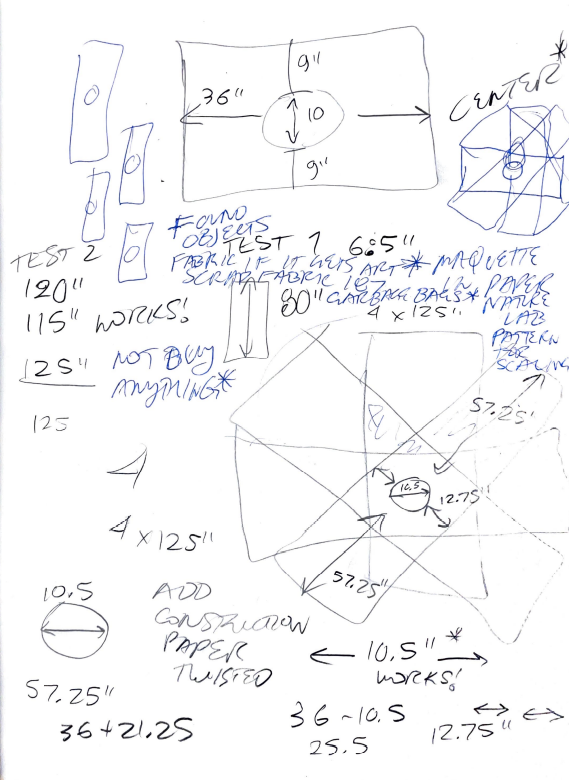 9"
36"
10
9"
CENTER*
FOUND
OBJECTS
TEST 1
FABRIC IF IT GETS ART*
SCRAP FABRIC
80"
GARBAGE BAGS*
4 x 125"
MAQUETTE
IN PAPER
NATURE
LAB
PATTERN
FOR
SCALING
TEST 2
120"
115" WORKS!
125"
NOT BUY
ANYTHING*
125
4
4 x 125"
57.25"
10.5
12.75"
57.25"
10.5
ADD
CONSTRUCTION
PAPER
TWISTED
10.5" *
WORKS!
57.25"
36+21.25
36-10.5
25.5
12.75"